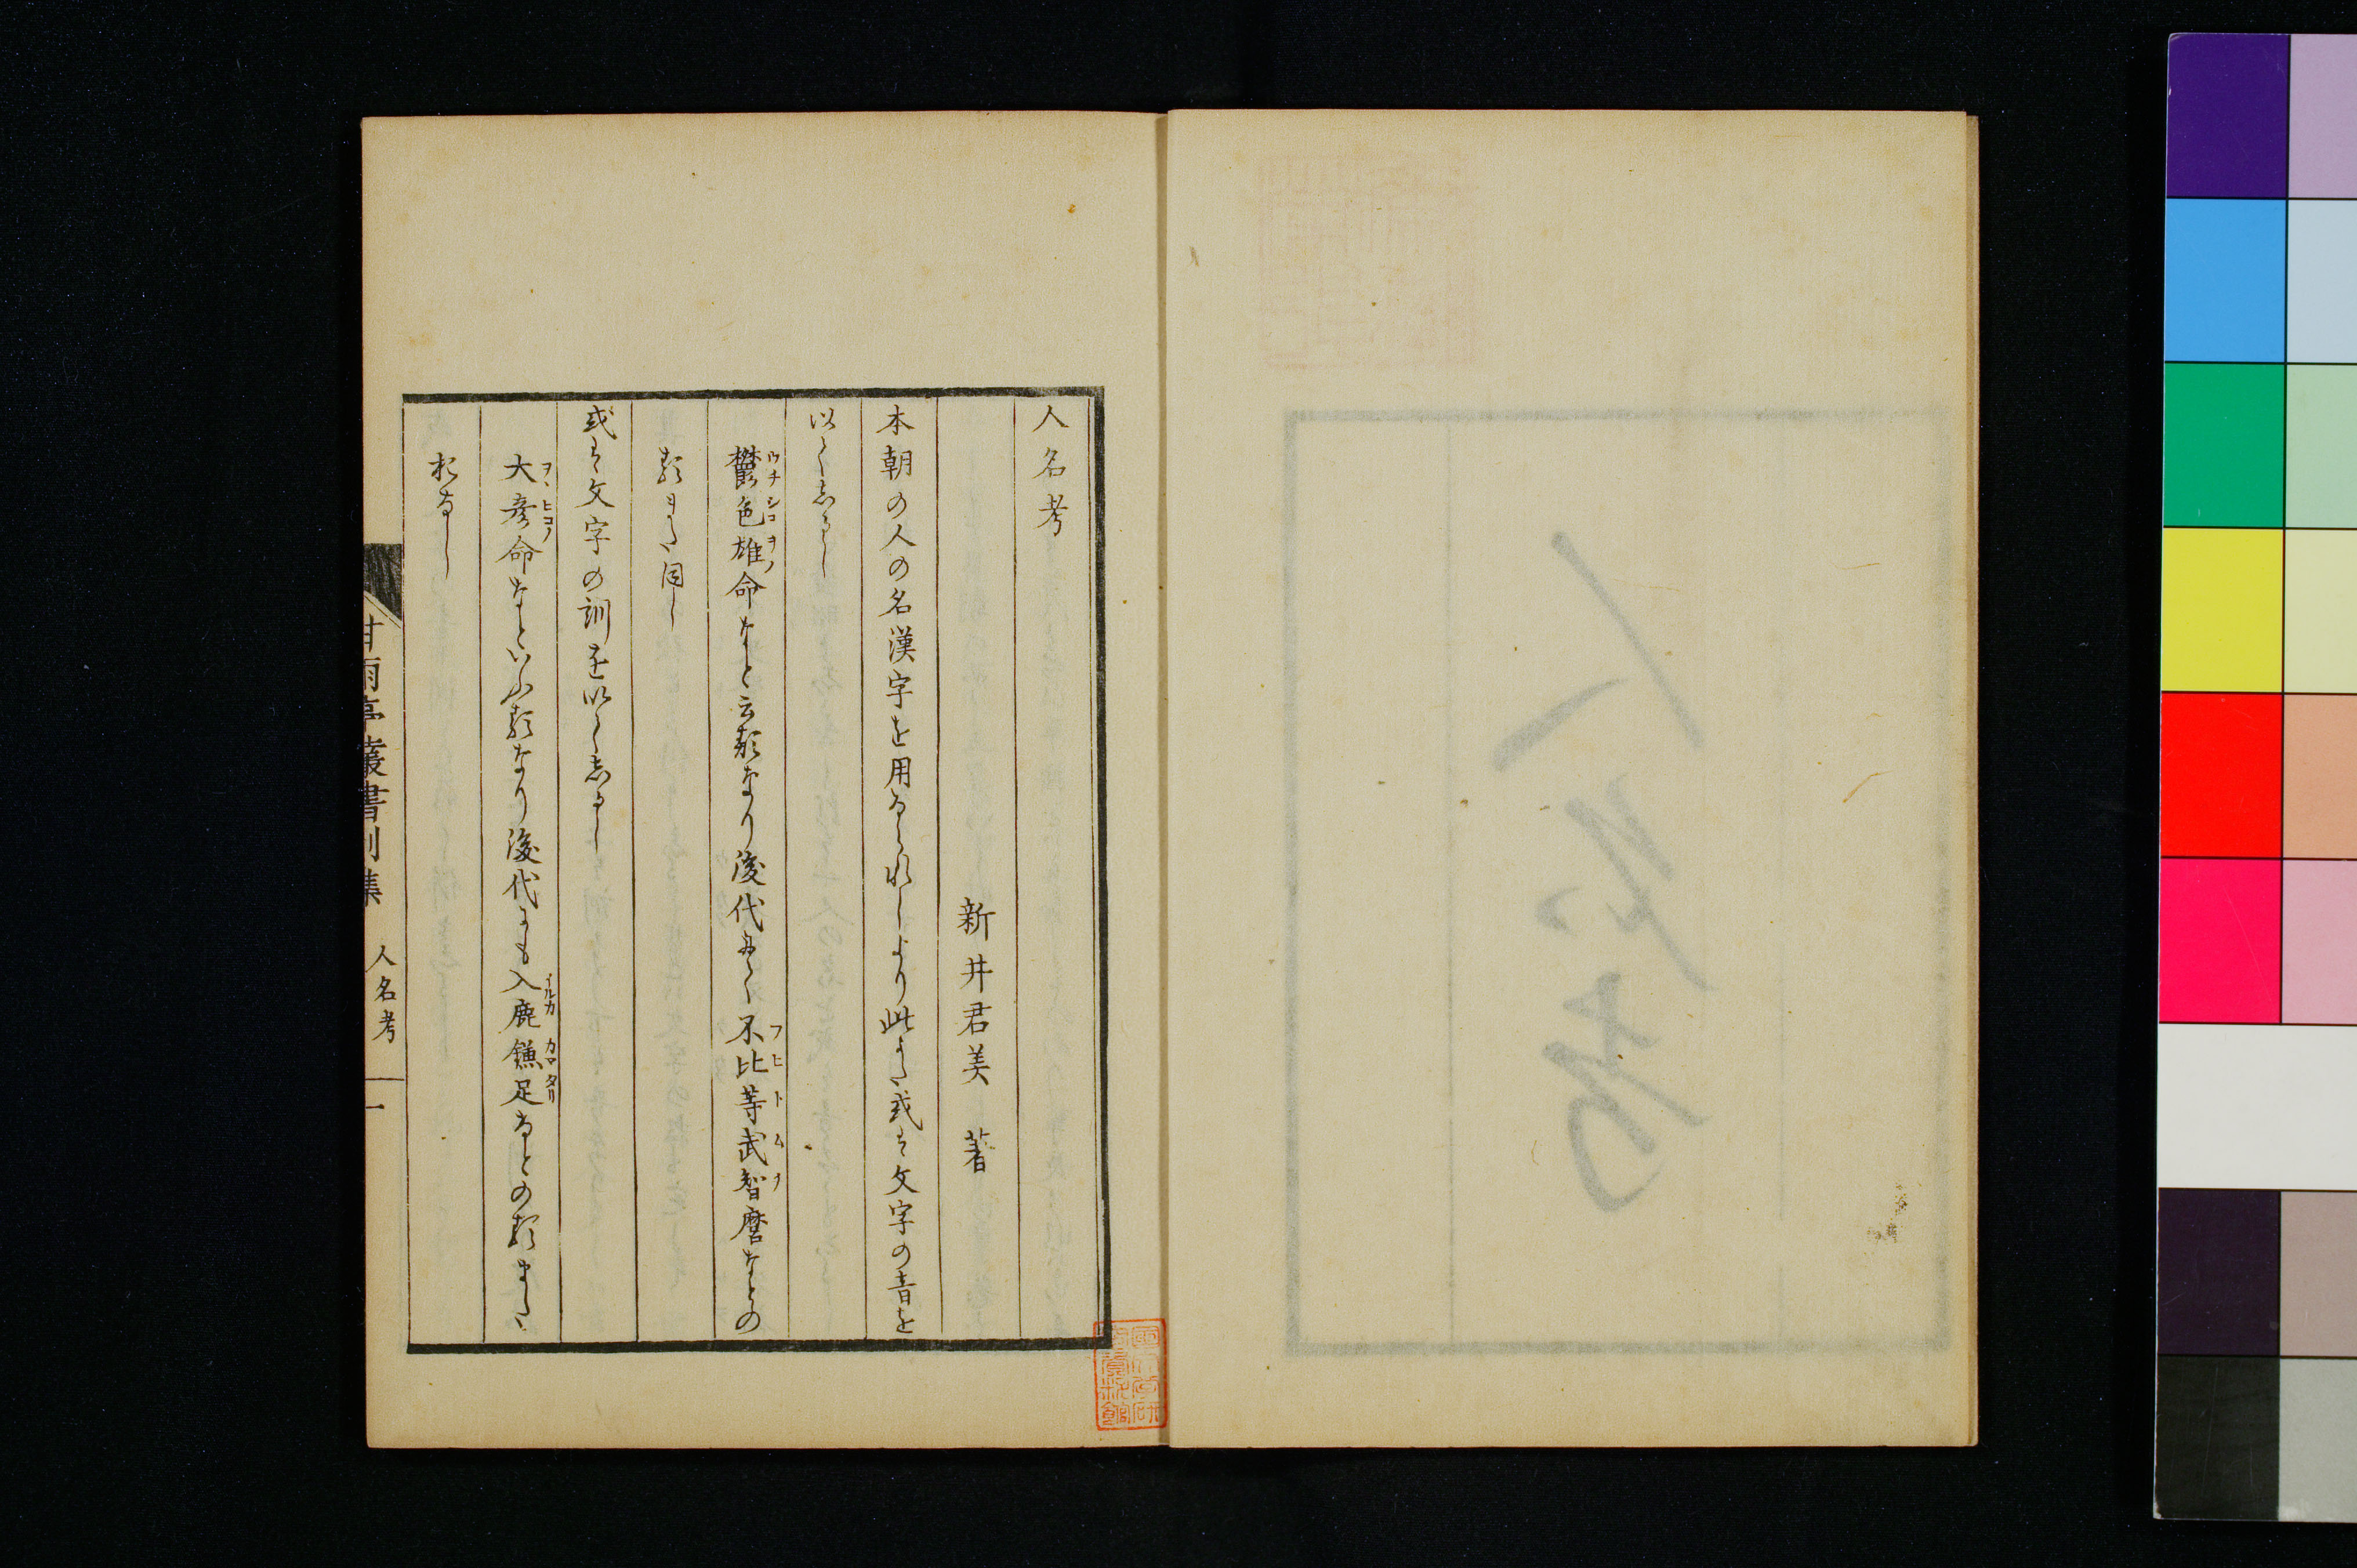 人名考
新井君美 著
本朝の人の名漢字を用ゐられしより此かた或は文字の音を
以てしるし
鬱色雄命なと云類なり後代にて不比等武智麿なとの
類また同し
或は文字の訓を以てしるし
大彦命なといふ類なり後代にも入鹿鎌足なとの類また
おなし
甘雨亭叢書別集 人名考 一